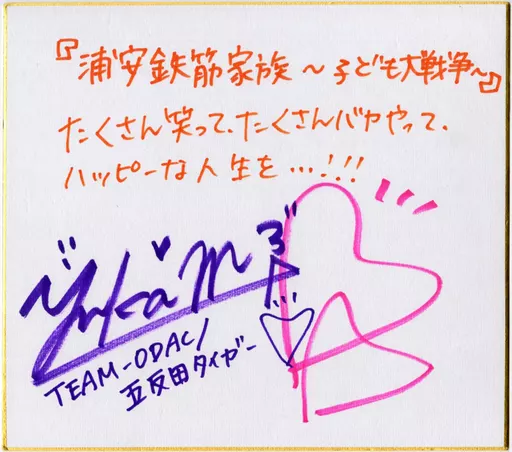 『浦安鉄筋家族～子ども大戦争～』
たくさん笑って、たくさんバカやって、
ハッピーな人生を…!!!
TEAM-ODAC/
五反田タイガー